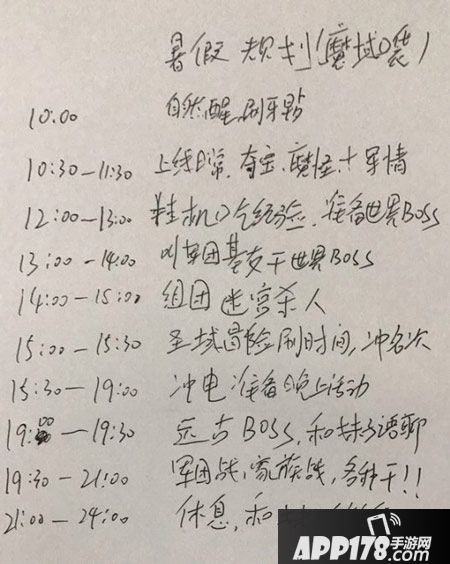 暑假 规划(魔域口袋)
10:00 自然醒,刷牙
10:30—11:30 上线日常,夺宝、魔怪、十军情
12:00—13:00 挂机吃经验,准备世界BOSS
13:00—14:00 叫军团基友干世界BOSS
14:00—15:00 组团迷宫杀人
15:00—15:30 圣域冒险刷时间,冲名次
15:30—19:00 冲电 准备晚上活动
19:00—19:30 远古BOSS,和妹子语聊
19:30—21:00 军团战,家族战,各种干!!
21:00—24:00 休息,和妹
APP178手游网
.com